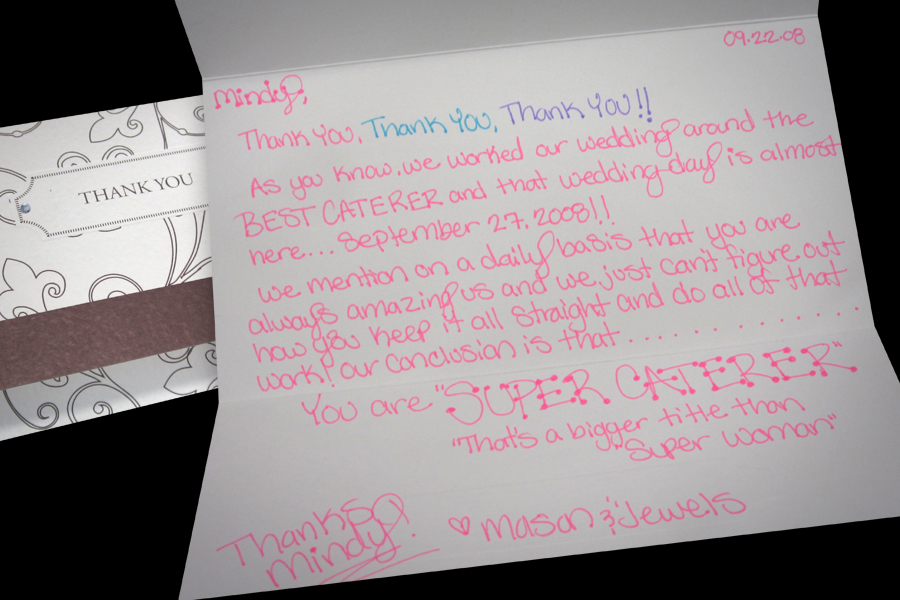 THANK YOU
09.22.08
Mindy,
Thank You, Thank You, Thank You!!
As you know, we worked our wedding around the
BEST CATERER and that wedding day is almost
here... September 27, 2008!!
we mention on a daily basis that you are
always amazing us and we just can't figure out
how you keep it all straight and do all of that
work! our conclusion is that..............
You are "SUPER CATERER"
"That's a bigger title than
Super Woman"
Thanks
Mindy!
♡ Mason & Jewels